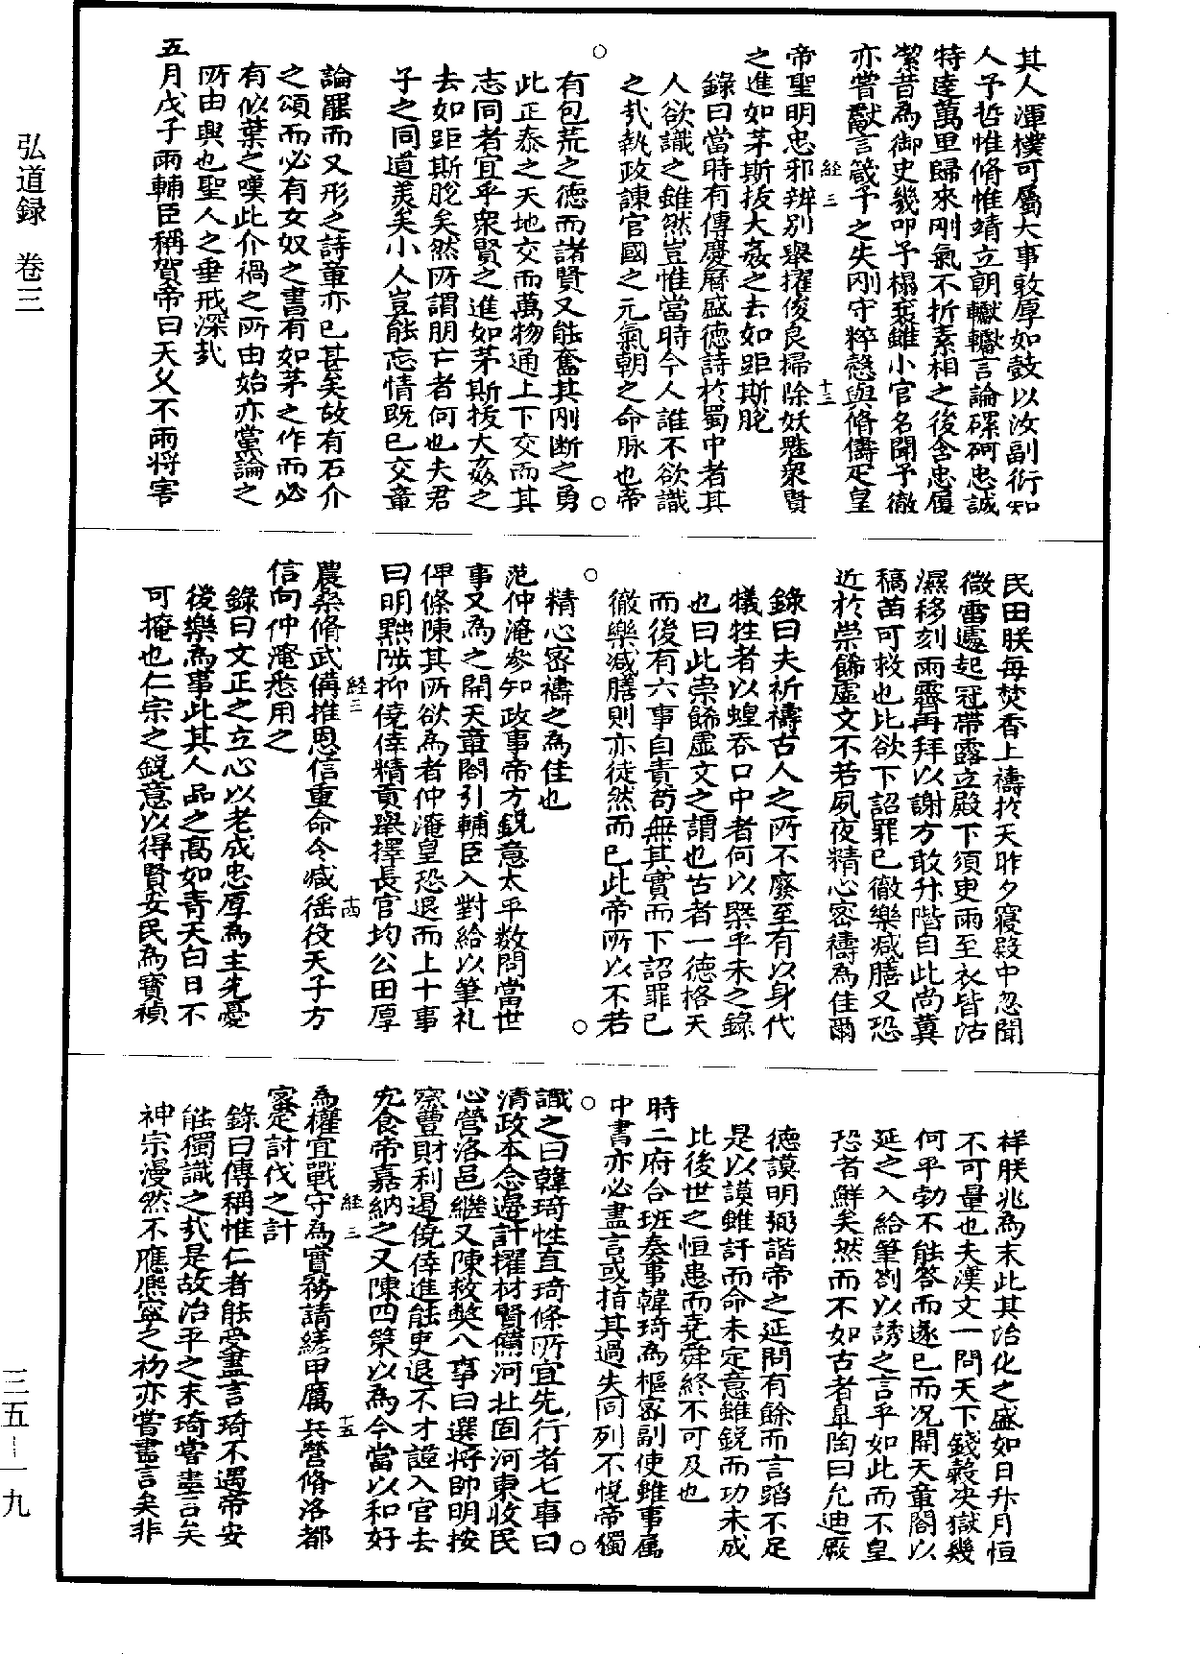 弘道録 卷三
其人渾樸可屬大事敦厚如㪣以汝副衍知
人予哲惟脩惟靖立朝轣轣言論磥砢忠誠
特達萬里歸來剛氣不折素相之後含忠履
潔昔為御史幾叩予榻襄雖小官名聞予徹
亦嘗獻言箴予之失剛守粹慤與脩儔疋皇
帝聖明忠邪辨別舉擢俊良掃除妖魃衆賢
經三 十三
之進如茅斯拔大姦之去如距斯脫
錄曰當時有傳慶曆盛德詩於蜀中者其
人欲識之雖然豈惟當時今人誰不欲識
之哉執政諫官國之元氣朝之命脉也帝
有包荒之德而諸賢又能奮其剛斷之勇
此正泰之天地交而萬物通上下交而其
志同者宜乎衆賢之進如茅斯拔大姦之
去如距斯脫矣然所謂朋亡者何也夫君
子之同道美矣小人豈能忘情旣已交章
論罷而又形之詩章亦已甚矣故有石介
之頌而必有女奴之書有如茅之作而必
有似葉之嘆此介禍之所由始亦黨論之
所由興也聖人之垂戒深哉
五月戊子雨輔臣稱賀帝曰天久不雨將害
民田朕每焚香上禱於天昨夕寢殿中忽聞
微雷遽起冠帶露立殿下須臾雨至衣皆沾
濕移刻雨霽再拜以謝方敢升階自此尚冀
稿苗可救也比欲下詔罪已徹樂減膳又恐
近於崇飾虛文不若夙夜精心密禱為佳爾
錄曰夫祈禱古人之所不廢至有以身代
犧牲者以蝗吞口中者何以槩乎未之錄
也曰此崇飾虛文之謂也古者一德格天
而後有六事自責苟無其實而下詔罪已
徹樂減膳則亦徒然而已此帝所以不若
精心密禱之為佳也
范仲淹參知政事帝方銳意太平數問當世
事又為之開天章閣引輔臣入對給以筆札
俾條陳其所欲為者仲淹皇恐退而上十事
曰明黜陟抑僥倖精貢舉擇長官均公田厚
經三 十四
農桑脩武備推恩信重命令減徭役天子方
信向仲淹悉用之
錄曰文正之立心以老成忠厚為主先憂
後樂為事此其人品之高如青天白日不
可掩也仁宗之銳意以得賢安民為寳禎
祥朕兆為末此其治化之盛如日升月恒
不可量也夫漢文一問天下錢穀决獄幾
何平勃不能答而遂已而况開天章閣以
延之入給筆劄以誘之言乎如此而不皇
恐者鮮矣然而不如古者臯陶曰允迪厥
德謨明弼諧帝之延問有餘而言蹈不足
是以謨雖訏而命未定意雖銳而功未成
此後世之恒患而堯舜終不可及也
時二府合班奏事韓琦為樞密副使雖事屬
中書亦必盡言或指其過失同列不悅帝獨
識之曰韓琦性直琦條所宜先行者七事曰
清政本念邊計擢材賢備河北固河東收民
心營洛邑繼又陳救弊八事曰選將帥明按
察豐財利遏僥倖進能吏退不才謹入官去
宂食帝嘉納之又陳四策以為今當以和好
經三 十五
為權宜戰守為實務請繕甲厲兵營脩洛都
密定討伐之計
錄曰傳稱惟仁者能受盡言琦不遇帝安
能獨識之哉是故治平之末琦嘗盡言矣
神宗漫然不應熈寧之初亦嘗盡言矣非
三五—一九